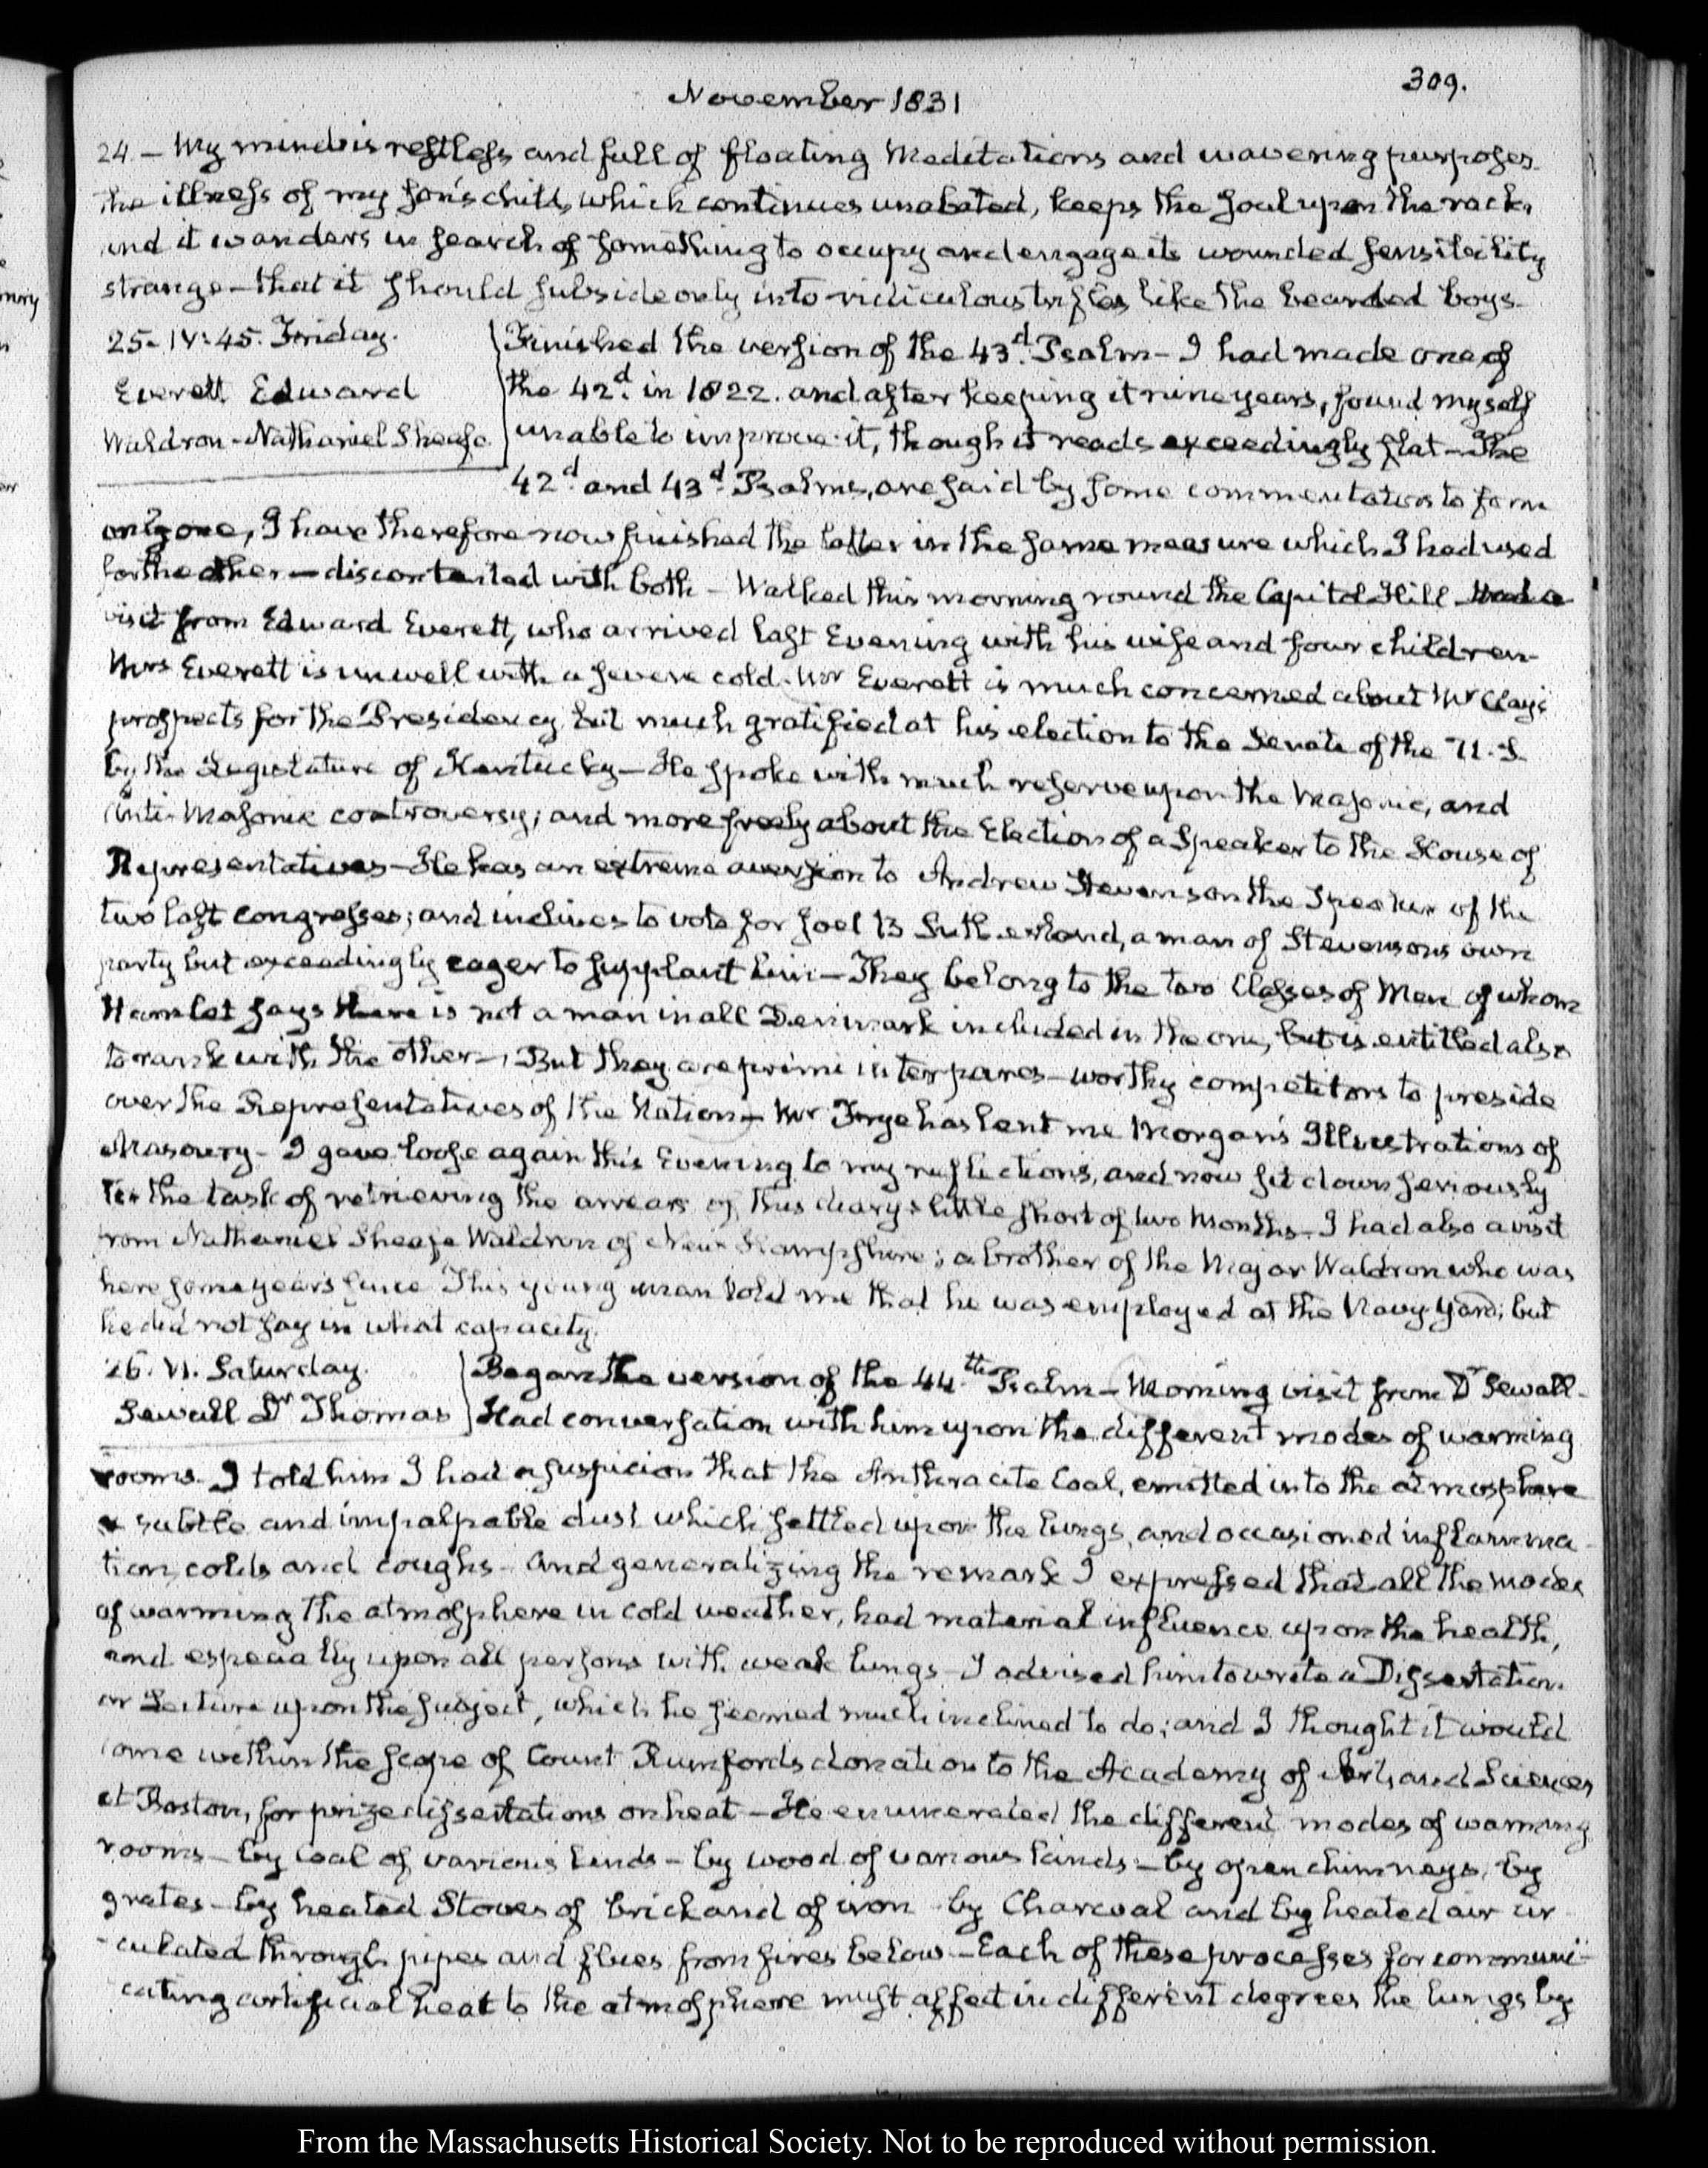 309.
November 1831
24. — My mind is restless and full of floating Meditations and wavering purposes.
the illness of my son's child, which continues unabated, keeps the soul upon the rack,
and it wanders in search of something to occupy and engage its wounded sensibility
strange — that it should subside only into ridiculous trifles like the bearded boys.
25. IV: 45. Friday.
Everett Edward
Waldron - Nathaniel Sheafe.
Finished the version of the 43d. Psalm — I had made one of
the 42d. in 1822. and after keeping it nine years, found myself
unable to improve it, though it reads exceedingly flat — The
42d. and 43d. Psalms, are said by some commentators to form
only one, I have therefore now finished the latter in the same measure which I had used
for the other — discontented with both — Walked this morning round the Capitol Hill — Had a
visit from Edward Everett, who arrived last Evening with his wife and four children
Mrs Everett is unwell with a severe cold. Mr Everett is much concerned about Mr Clay's
prospects for the Presidency but much gratified at his election to the Senate of the U.S.
by the Legislature of Kentucky — He spoke with much reserve upon the Masonic, and
Anti-Masonic controversy; and more freely about the Election of a Speaker to the House of
Representatives — He has an extreme aversion to Andrew Stevenson the Speaker of the
two last congresses; and inclines to vote for Joel B Sutherland, a man of Stevensons own
party but exceedingly eager to supplant him — They belong to the two Classes of Men of whom
Hamlet says there is not a man in all Denmark included in the one, but is entitled also
to rank with the other —, But they are primi inter pares — worthy competitors to preside
over the Representatives of the Nation — Mr Frye has lent me Morgan's Illustrations of
Masonry — I gave loose again this Evening to my reflections, and now sit down seriously
to the task of retrieving the arrears of this diary; little short of two Months — I had also a visit
from Nathaniel Sheafe Waldron of New Hampshire; a brother of the Major Waldron who was
here some years since This young man told me that he was employed at the Navy Yard; but
he did not say in what capacity.
26. VI. Saturday.
Sewall Dr Thomas
Began the version of the 44th. Psalm — Morning visit from Dr Sewall -
Had conversation with him upon the different modes of warming
rooms. I told him I had a suspicion that the Anthracite Coal, emitted into the atmosphere
a subtle and impalpable dust which settled upon the lungs, and occasioned inflamma-
tion, colds and coughs - And generalizing the remark I expressed that all the modes
of warming the atmosphere in cold weather, had material influence upon the health,
and especially upon all persons with weak lungs - I advised him to write a Dissertation
or Lecture upon the subject, which he seemed much inclined to do; and I thought it would
come within the scope of Count Rumfords donation to the Academy of Arts and Sciences
at Boston, for prize dissertations on heat — He enumerated the different modes of warming
rooms — by Coal of various kinds — by wood of various kinds — by open chimneys, by
grates — by heated Stoves of brick and of iron - by Charcoal and by heated air cir-
-culated through pipes and flues from fires below — Each of these processes for communi-
-cating artificial heat to the atmosphere must affect in different degrees the lungs by
From the Massachusetts Historical Society. Not to be reproduced without permission.